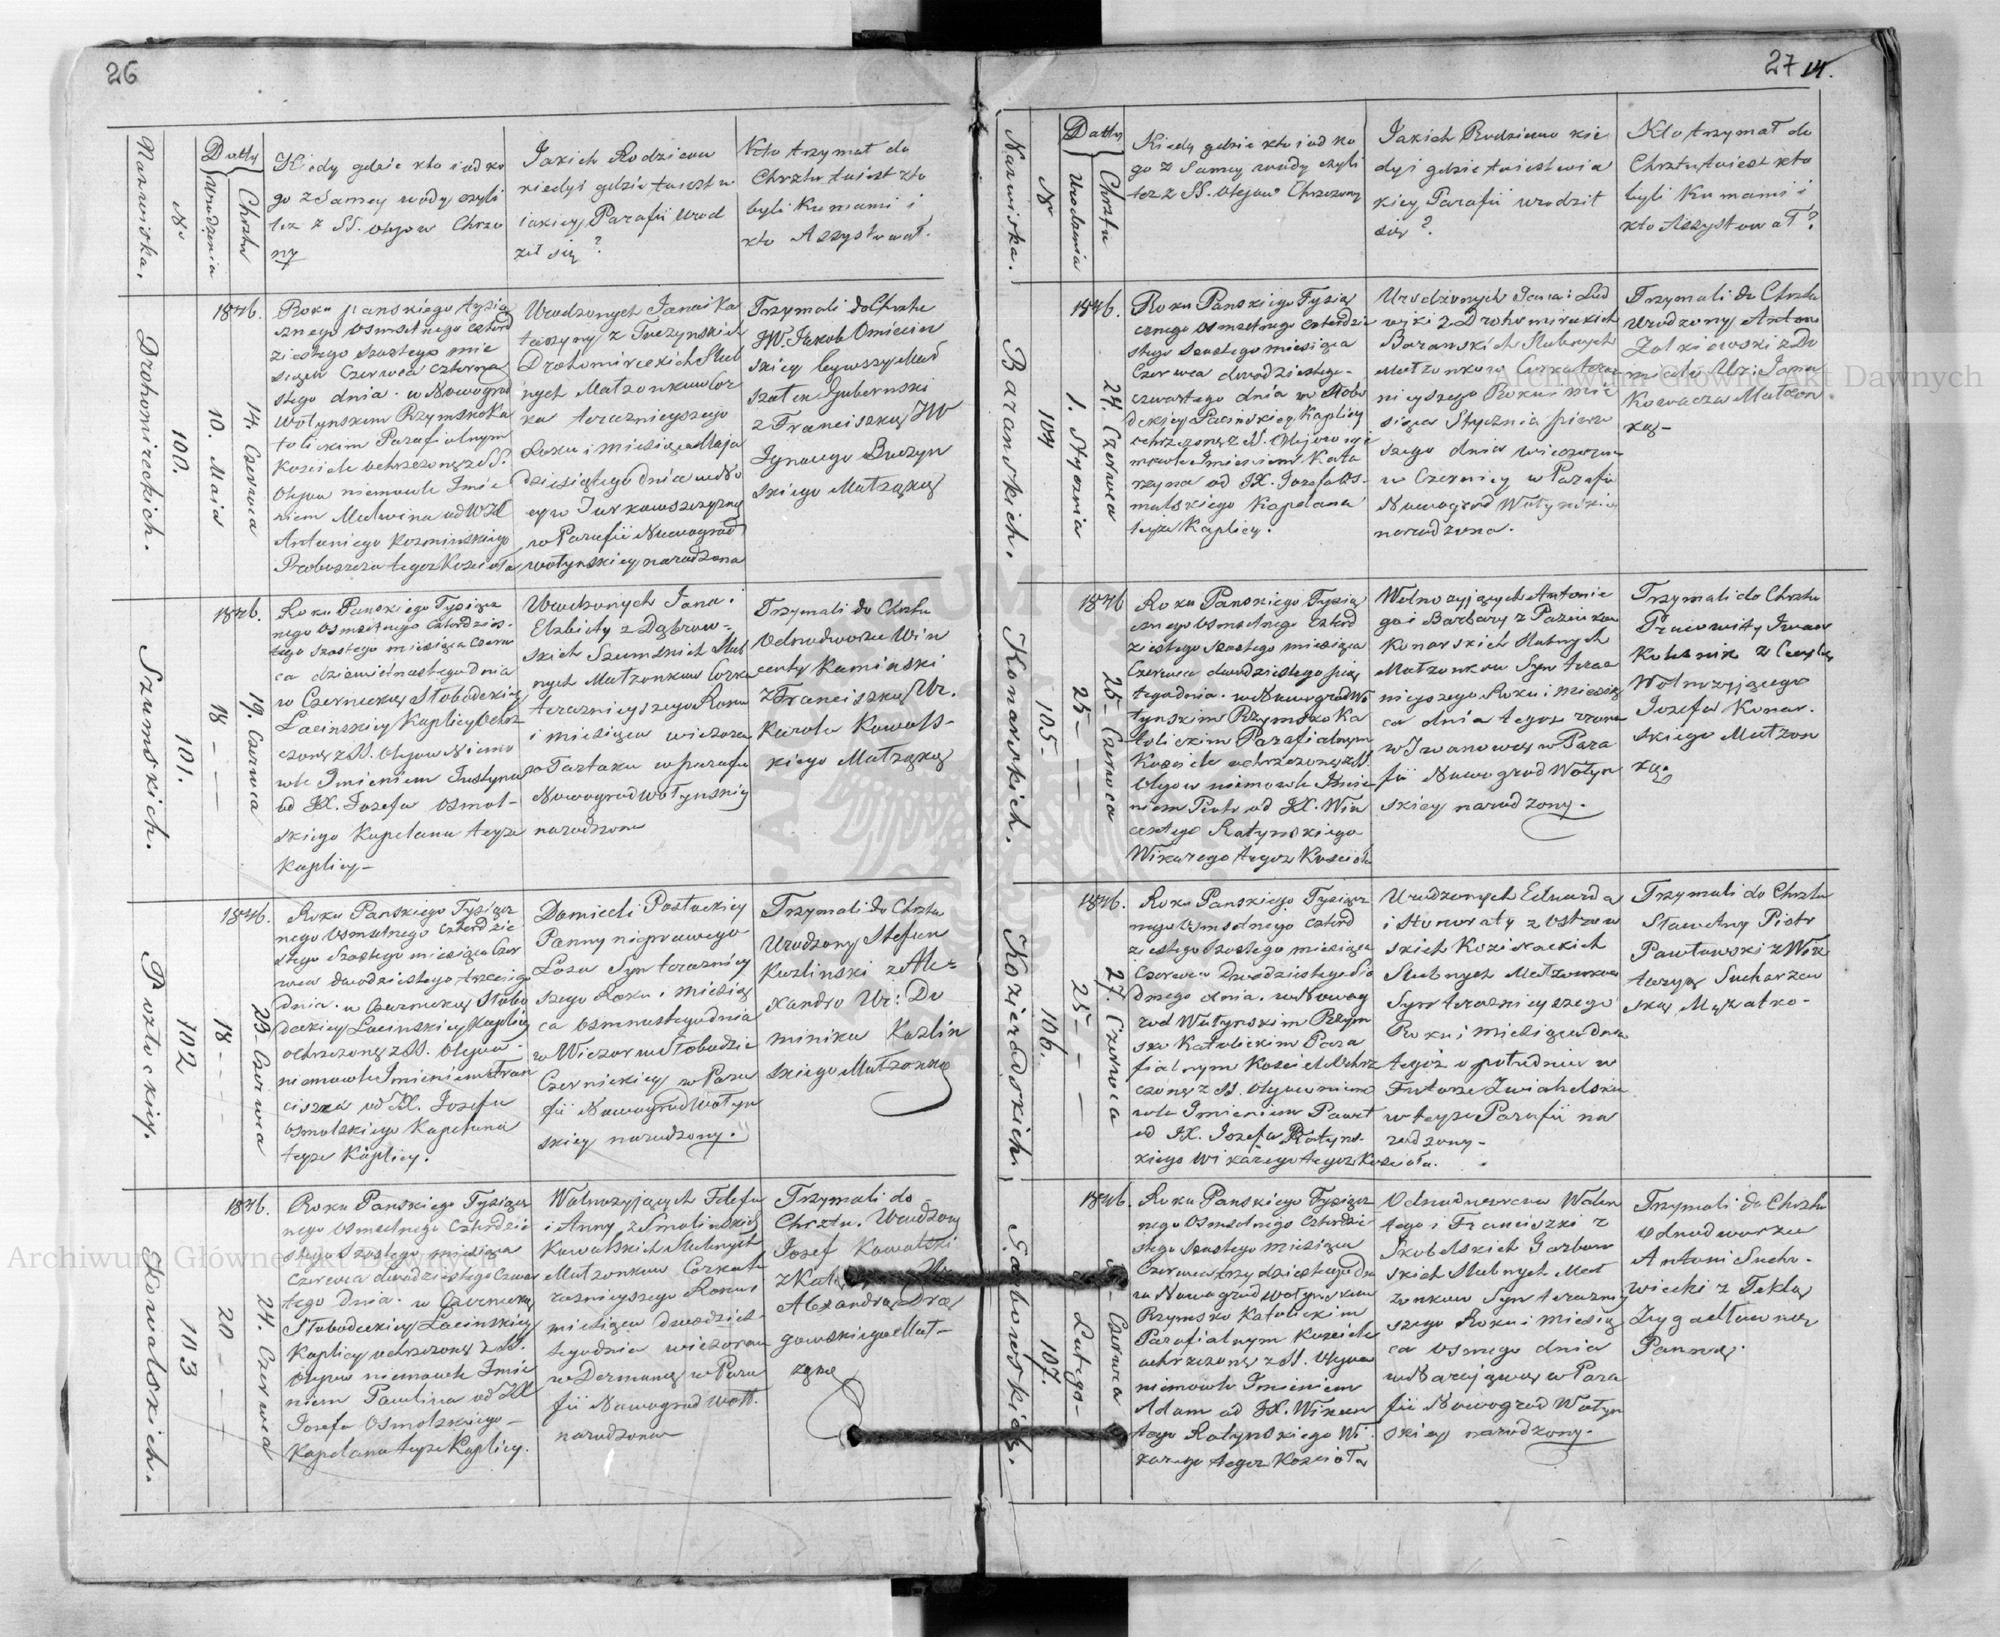 26
Nazwiska.
No
Datty
Urodzenia
Chrztu
Kiedy gdzie kto i od ko
go z Samey wody czyli
tez z SS. olejow Chrzczo
ny
Jakich Rodzicow
kiedy i gdzie tudziesz w
iakiey Parafii urod
ził się?
Kto trzymał do
Chrztu tudziesz kto
byli Kumami i
kto Assystował.
Drohomireckich.
100.
1846.
10. Maia
14. Czerwca
Roku Panskiego tysią
cznego osmsetnego czterd
ziestego szostego mie
siąca Czerwca czterna
stego dnia. w Nowogrod
Wołynskim Rzymsko Ka
tolickim Parafialnym
Kosciele ochrzczoną z SS.
Olejow niemowle Imie
niem Malwina od WJX
Antoniego Kozminskiego
Proboszcza tegoz Koscioła
Urodzonych Jana i Ka
tarzyny z Tuczynskich
Drohomireckich Slub
nych Małzonkow Cor
ka terazneyszego
Roku i Miesiąca Maja
dziesiątego dnia
w Jurkowszczyznie
w Parafii Nowogrod
wołynskiey narodzona
Trzymali do Chrztu
JW. Jakob Omiecin
skiey bywszy Mar
szałek Gubernski
z Franciszką JW
Ignacego Buczyn
skiego Małżąką
Szumskich.
101.
1846.
18 – –
19. Czerwca
Roku Panskiego Tysiącz
nego osmsetnego czterdzies-
tego szostego miesiąca Czerw
ca dziewietnastego dnia
w Czerneckey Słobodeckiey
Łacinskiey Kaplicy Ochrz
czoną z SS. Olejow Niemo
wle Imieniem Justyna
od JX. Jozefa Osmol-
skiego Kapelana teyze
Kaplicy-
Urodzonych Jana i
Elzbiety z Dąbrow-
skich Szumskich Slub
nych Małzonkow Corka
terazneyszego Roku
i miesiąca wieczorem
w Tartaku w parafii
Nowogrod wołynskiey
narodzona
Trzymali do Chrztu
Odnodworzec Win
centy Kaminski
z Franciszką Ur.
Karola Kowals-
kiego Małżąką
Potockiey.
102
1846.
18 - - -
23- Czerwca
Roku Panskiego Tysiącz
nego osmsetnego czterdzie
stego szostego miesiąca Czer
wca dwodziestego trzeciego
dnia. w Czerneckey Słobo
deckiey Łacinskiey Kaplicy
ochrzczoną z SS. Olejow-
niemowle Imieniem Fran
ciszek od JX. Jozefa
Osmolskiego Kapelana
teyze Kaplicy.
Domicelli Potockiey
Panny nieprawego
Łoza Syn terazniey
szego Roku i miesią
ca osmnastego dnia
w Wieczor w Słobodzie
Czernickiey w Para
fii Nowogrod Wołyn
skiey narodzony.
Trzymali do Chrztu
Urodzony Stefan
Kozlinski z Ale-
xandrą Ur: Do
minika Kozlin
skiego Małzonką
Kowalskich.
103
1846.
20 - -
24. Czerwca
Roku Panskiego Tysiącz
nego osmsetnego czterdzie
stego szostego miesiąca
Czerwca dwodziestego czwar
tego dnia. w Czerneckey
Słobodeckiey Łacinskiey
Kaplicy ochrzczoną z SS.
Olejow niemowle Imie
niem Paulina od JX
Jozefa Osmolskiego-
Kapelana teyze Kaplicy.
Wolnozyjących Jozefa
i Anny z Smolinskich
Kowalskich Slubnych
Małzonkow Corka te
raznieyszego Roku i
miesiąca dwodzies-
tego dnia wieczorem
w Dermaney w Para
fii Nowogrod Woł.
narodzona
Trzymali do-
Chrztu. Urodzony
Jozef Kowalski
Alexandra Dra
gowskiego Mał-
żąką
27 14.
Nazwiska.
No
Datty
Urodzenia
Chrztu
Kiedy gdzie kto i od ko
go z Samey wody czyli
tez z SS. Olejow Chrzczony
Jakich Rodzicow kie
dy i gdzie tudziesz w ia
kiey Parafii urodził
się?
Kto trzymał do
Chrztu tudziesz kto
byli Kumami i
kto Assystował?
Baranskich.
104
1846.
1. Stycznia
24. Czerwca
Roku Panskiego Tysią
cznego osmsetnego czterdzie
stego szostego miesiąca
Czerwca dwodziestego-
czwartego dnia w Słobo
deckiey Łacinskiey Kaplicy
ochrzczoną z SS. Olejow nie
mowle Imieniem Kata
rzyna od JX. Jozefa Os-
molskiego Kapelana
teyze Kaplicy.
Urodzonych Jana i Lud
wiki z Drohomireckich
Baranskich Slubnych
Małzonkow Corka teraz
nieyszego Roku mie
siąca Stycznia pierw
szego dnia wieczorem
w Czernicy w Parafii
Nowogrod Wołynskiey
narodzona.
Trzymali do Chrztu
Urodzony Anton
Zołkiewski z Do
micelą Ur: Jana
Kowacza Małzon
ką-
Konarskich.
105-
1846
25- – –
25- Czerwca
Roku Panskiego Tysią
cznego osmsetnego czterd
ziestego szostego miesiąca
Czerwca dwodziestego pią
tego dnia. w Nowogrod Wo
łynskim Rzymsko Ka
tolickim Parafialnym
Kosciele ochrzczoną z SS.
Olejow niemowle Imie
niem Piotr od JX. Win
centego Ratynskiego
Wikarego tegoz Koscioła
Wolnozyjących Antonie
go i Barbary z Pazukow
Konarskich Slubnych
Małzonkow Syn teraz
nieyszego Roku i miesią
ca dnia tegoz zrana
w Iwanowey w Para
fii Nowogrod Wołyn
skiey narodzony.
Trzymali do Chrztu
Pracowity Iwan
Kolesnik z
Wolnozyjącego
Jozefa Konar-
skiego Małzon
ką
Kozieradskich.
106.
1846.
25- – –
27. Czerwca
Roku Panskiego Tysiącz
nego Osmsetnego czterd
ziestego szostego miesiąca
Czerwca Dwodziestego Sio
dmego dnia. w Nowog
rod Wołynskim Rzym
sko Katolickim Para
fialnym Kosciele Ochrz
czoną z SS. Olejow niemo
wle Imieniem Paweł
od JX. Jozefa Ratyns-
kiego Wikarego tegoz Koscioła.
Urodzonych Edwarda
i Honoraty z Ostrow
skich Kozierackich
Slubnych Małzonkow
Syn teraznieyszego
Roku i miesiąca dnia
tegoz o południu w
Futorze Zwiahelsku
w teyze Parafii na
rodzony-
Trzymali do Chrztu
Sławetny Piotr
Pawłowski z Wik
toryą Sucharzew
ską Mężatko-
Garbowskich.
107.
1846.
Lutego-
Czerwca
Roku Panskiego Tysiącz
nego Osmsetnego Czterdzie
stego szostego miesiąca
Czerwca trzydziestego dnia
w Nowogrod Wołynskim
Rzymsko Katolickim
Parafialnym Kosciele
ochrzczoną z SS. Olejow
niemowle Imieniem
Adam od JX. Wincen
tego Ratynskiego Wi
karego tegoz Koscioła
Odnodworcow Walen
tego i Franciszki z
Skobelskich Garbow
skich Slubnych Mał
zonkow Syn terazniey
szego Roku i miesią
ca osmego dnia
w Para
fii Nowogrod Wołyn
skiey narodzony-
Trzymali do Chrztu
Odnodworzec
Antoni Sucho-
wiecki z Teklą
Zygadłowną
Panną.
Archiwum Główne Akt Dawnych
Archiwum Główne Akt Dawnych